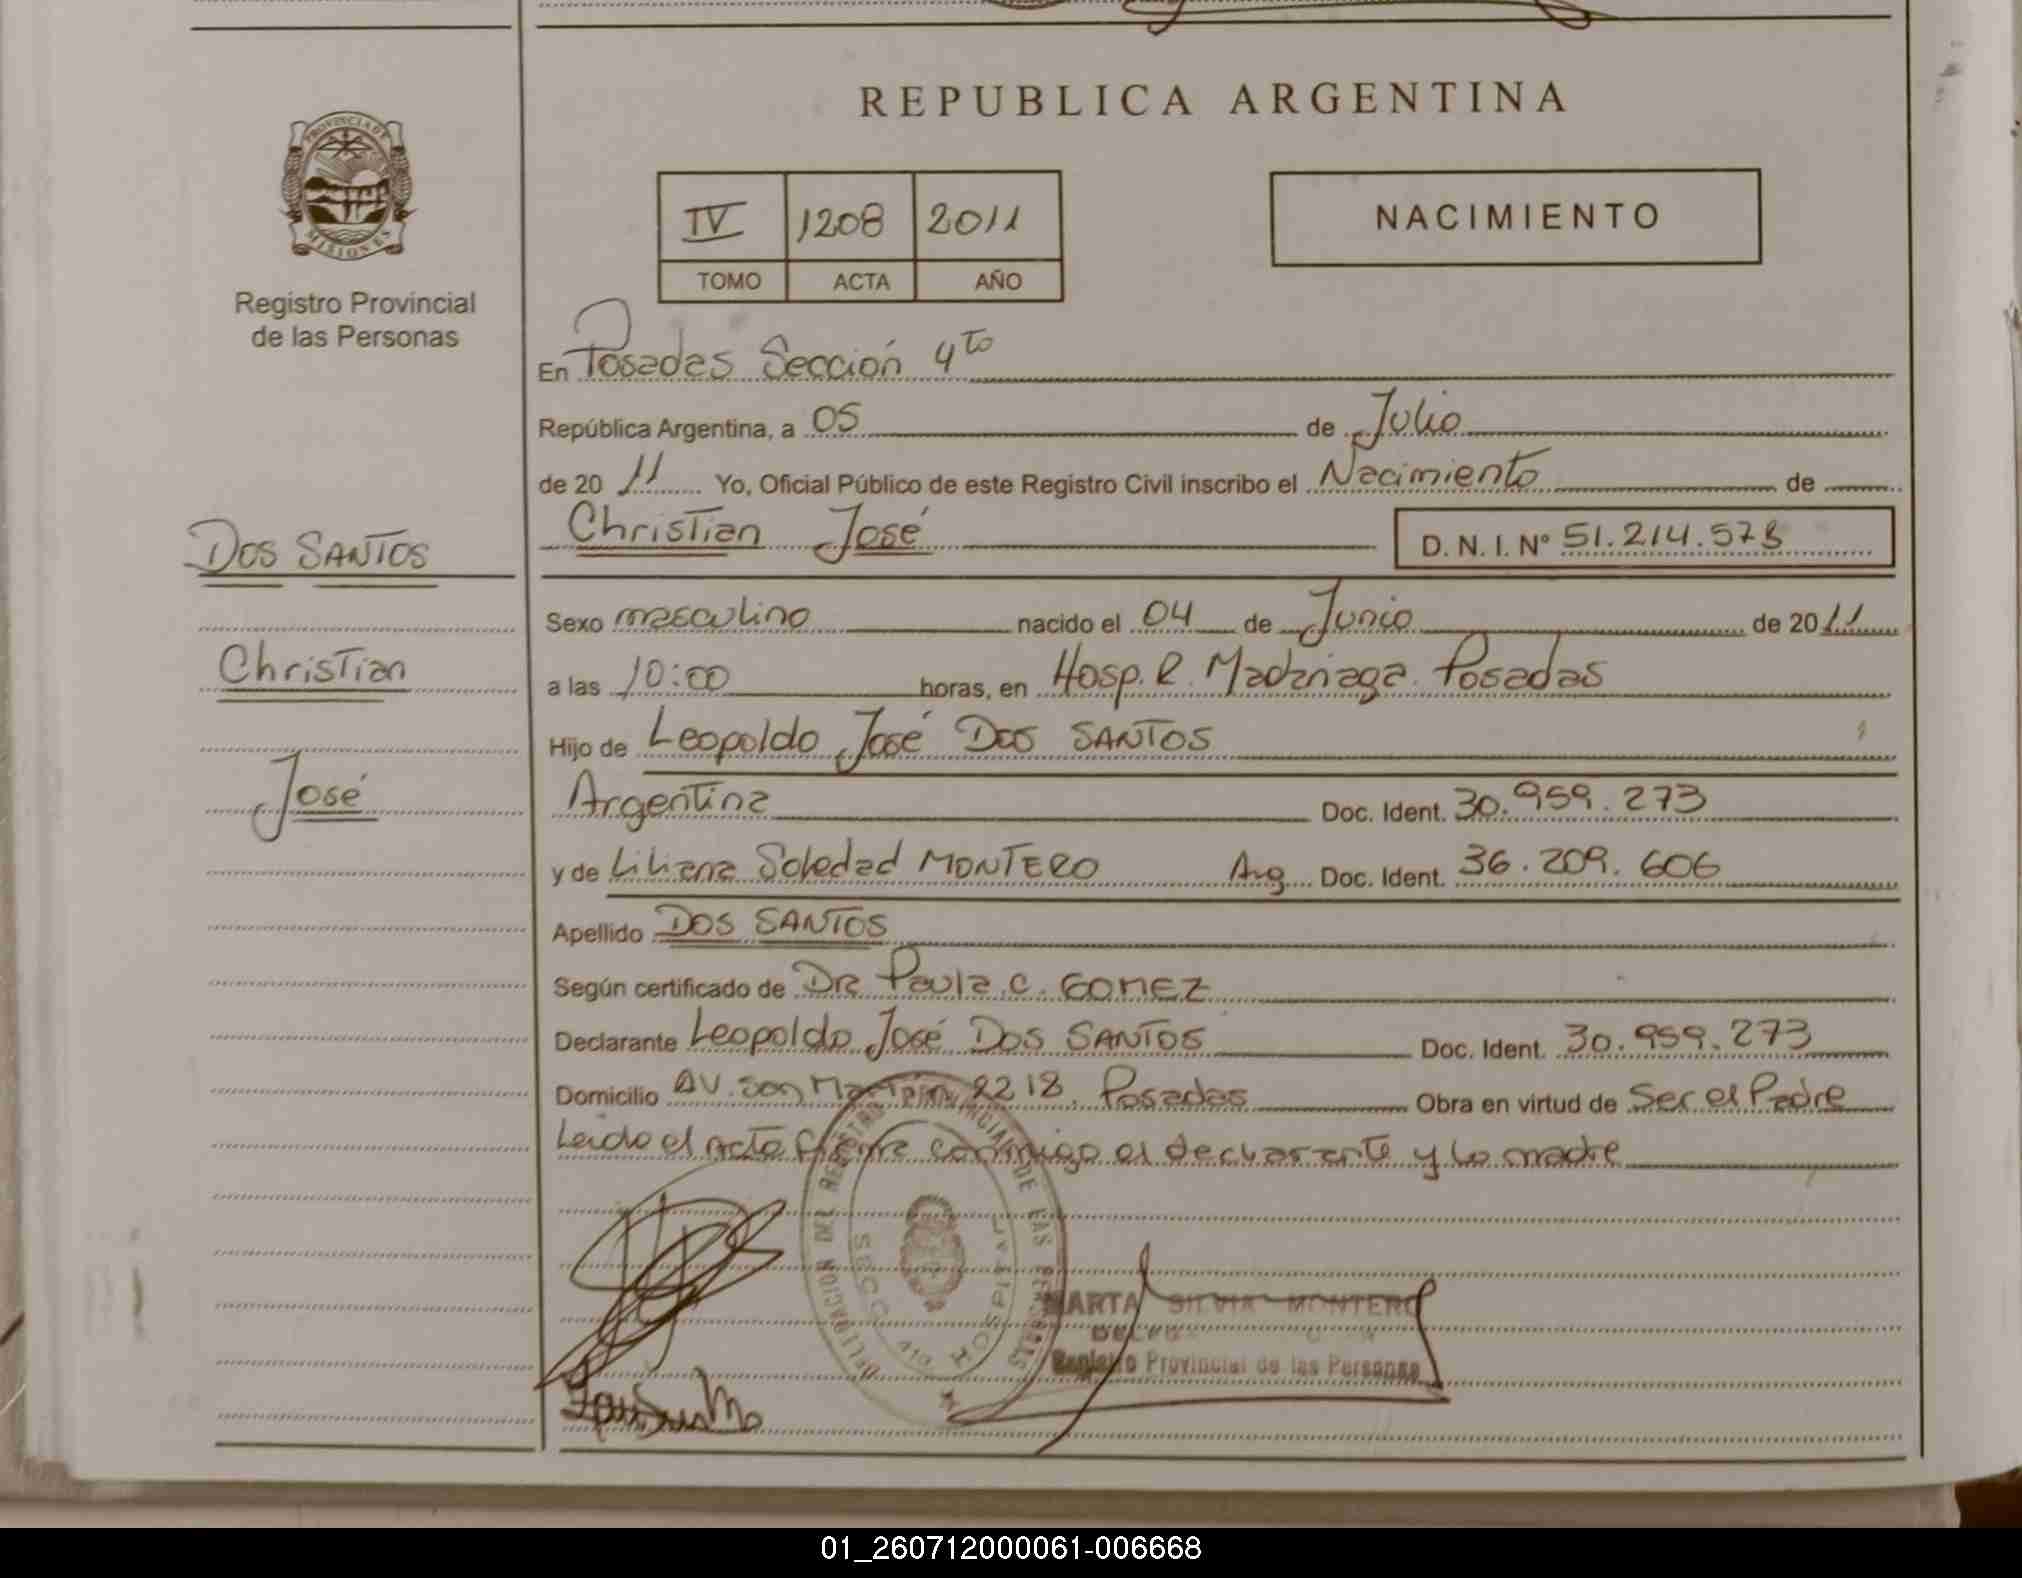 REPUBLICA ARGENTINA
PROVINCIA DE
MISIONES
Registro Provincial
de las Personas
IV 1208 2011
TOMO ACTA AÑO
NACIMIENTO
En Posadas Sección 4to
República Argentina, a 05 de Julio
de 20 11 Yo, Oficial Público de este Registro Civil inscribo el Nacimiento de
Christian José D. N. I. Nº 51.214.573
DOS SANTOS
Christian
José
Sexo masculino nacido el 04 de Junio de 20 11
a las 10:00 horas, en Hosp. R. Madariaga. Posadas
Hijo de Leopoldo José Dos SANTOS
Argentina Doc. Ident. 30.959.273
y de Liliana Soledad MONTERO Arg. Doc. Ident. 36.209.606
Apellido DOS SANTOS
Según certificado de Dra Paula C. GOMEZ
Declarante Leopoldo José Dos SANTOS Doc. Ident. 30.959.273
Domicilio AV. San Martin 2218. Posadas Obra en virtud de Ser el Padre
Leido el acta firma conmigo el declarante y la madre
DELEGACION DEL REGISTRO PROVINCIAL DE LAS PERSONAS
SECC 4ta HOSPITAL
MARTA SILVIA MONTERO
Registro Provincial de las Personas
01_260712000061-006668